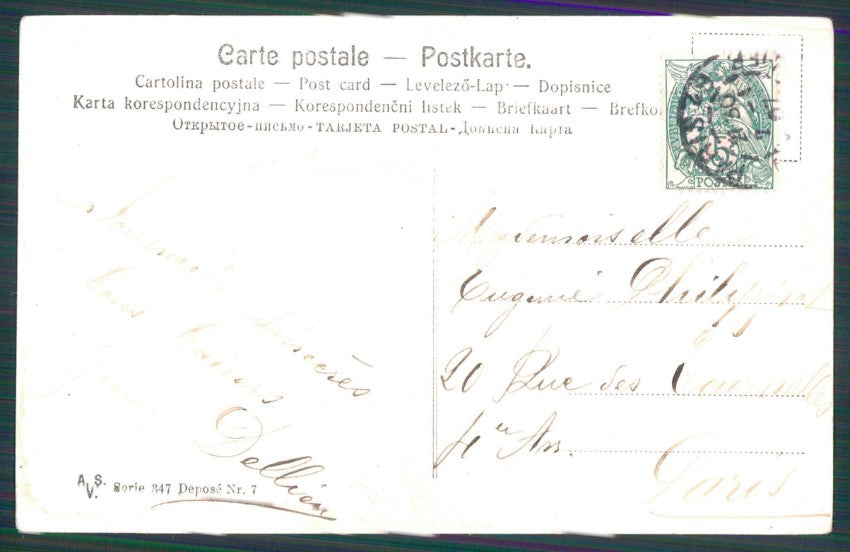 Carte postale — Postkarte.
Cartolina postale — Post card — Levelező-Lap — Dopisnice
Karta korespondencyjna — Korespondenčni listek — Briefkaart — Brefko
Открытое-письмо-TARJETA POSTAL-Дописна Карта
POSTES
Souhaits sincères
bons baisers
Dellien
Mademoiselle
Eugénie Philippot
20 Rue des Tournelles
4e Arr.
Paris
A.S.V. Serie 347 Deposé Nr. 7